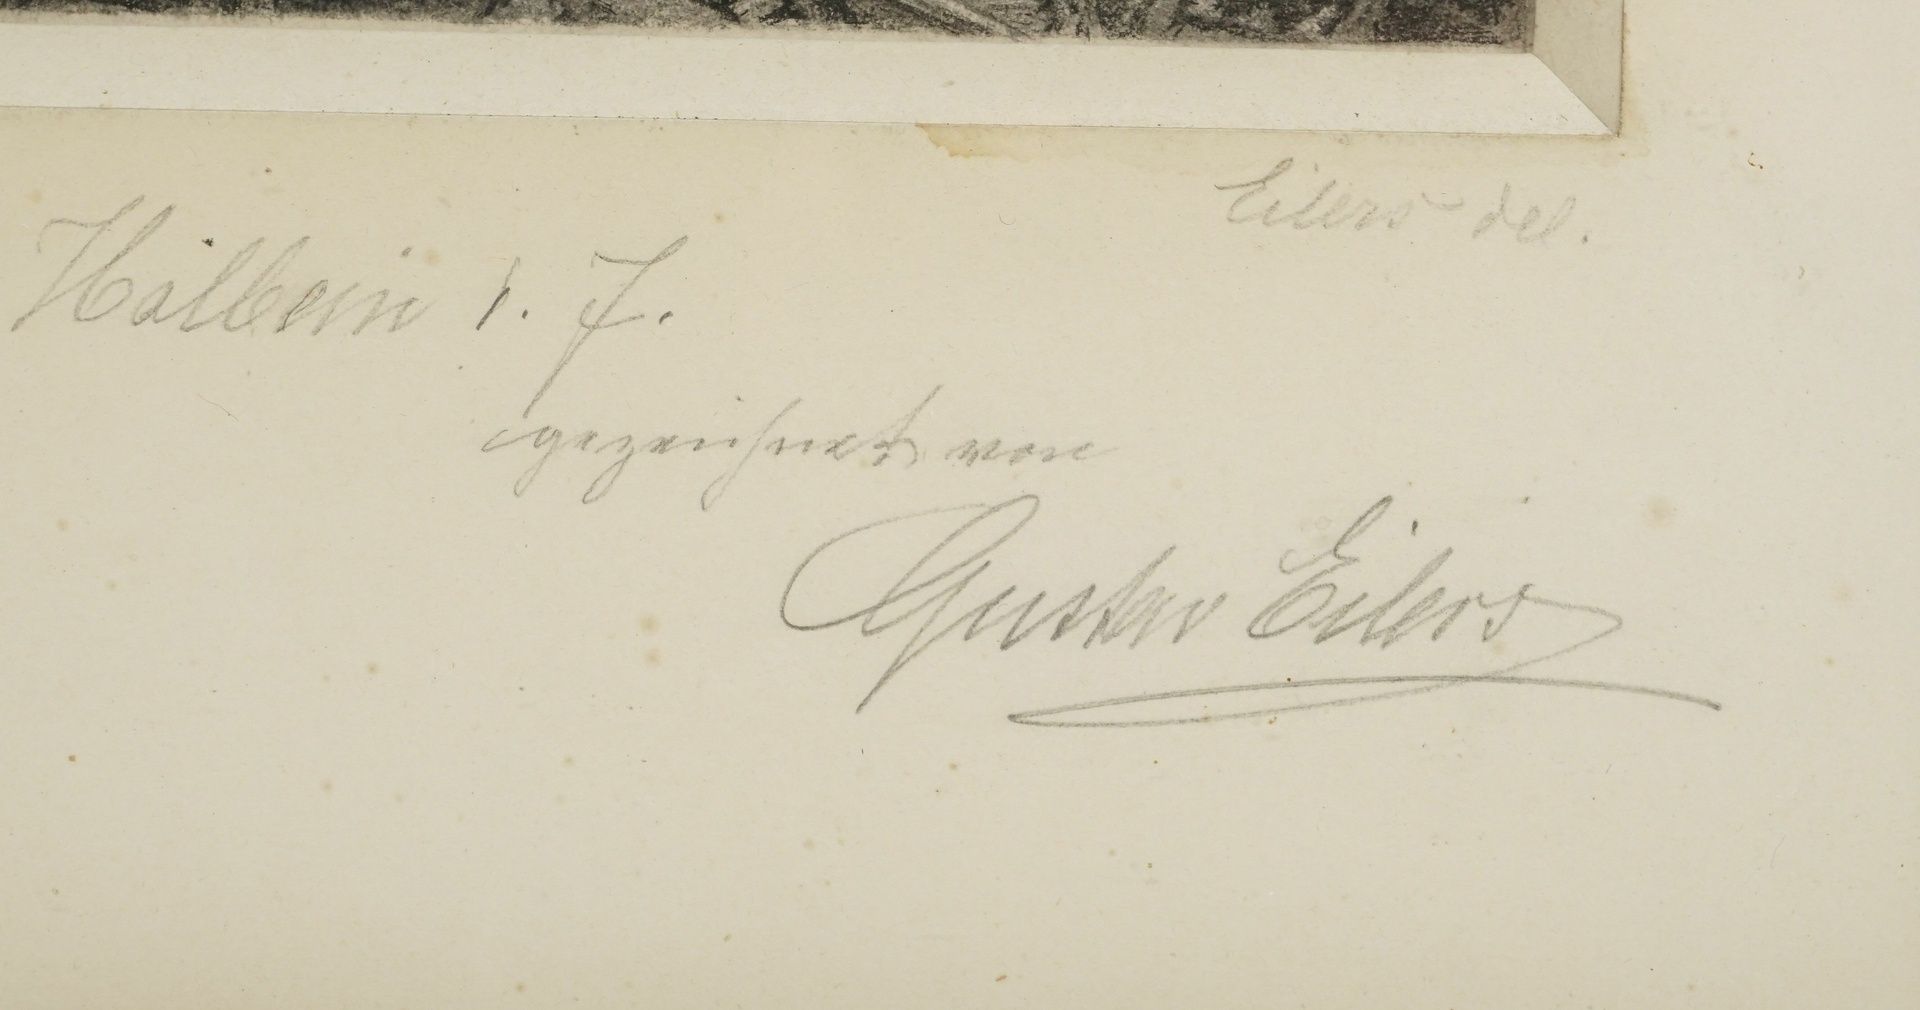 Eilers del.
Holbein d. J.
gezeichnet von
Gustav Eilers